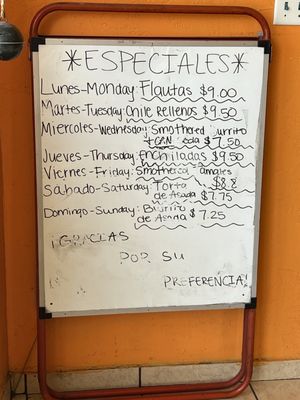 *ESPECIALES*
Lunes-Monday: Flautas $9.00
Martes-Tuesday: Chile Rellenos $9.50
Miercoles-Wednesday: Smothered urrito
+ CAN cola $7.50
Jueves-Thursday: Enchiladas $9.50
Viernes-Friday: Smothered amales
Sabado-Saturday: Torta
de Asada $7.75
Domingo-Sunday: Burrito
de Asada $7.25
¡GRACIAS
POR SU
PREFERENCIA!